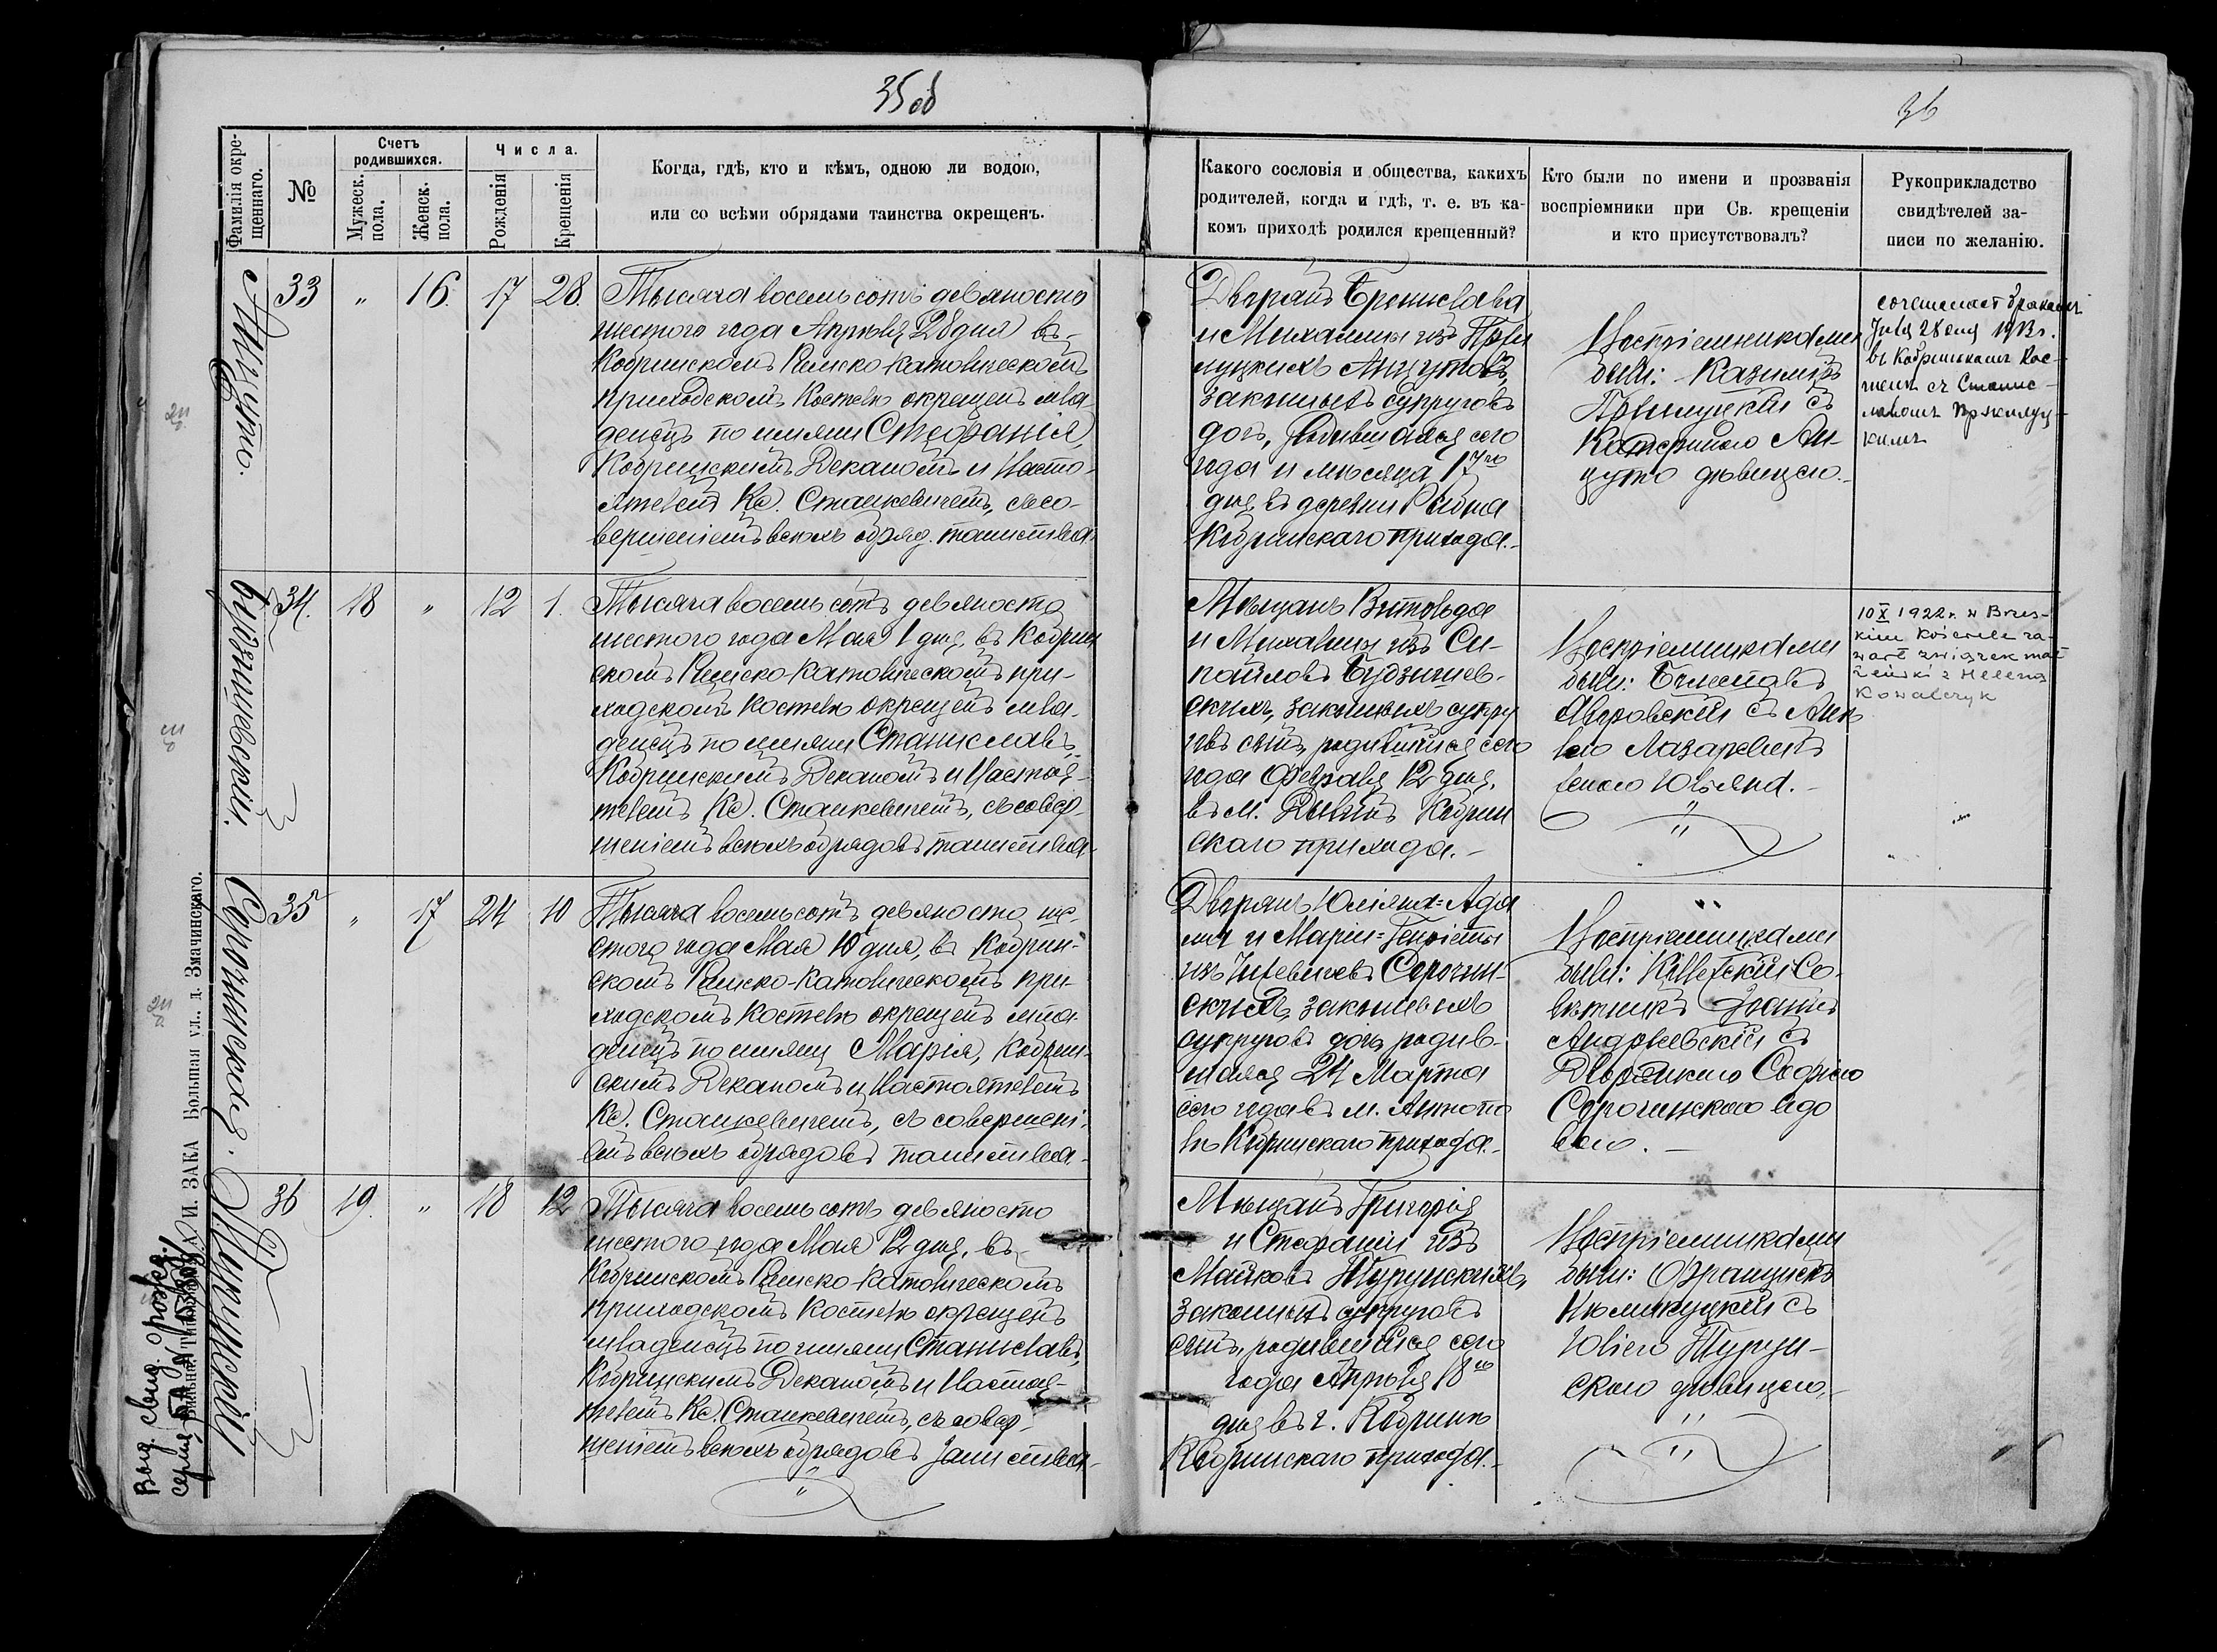 35 об
36
Фамилія окре-
щеннаго.
№
Счетъ
родившихся.
Мужеск.
пола.
Женск.
пола.
Числа.
Рожденія
Крещенія
Когда, гдѣ, кто и кѣмъ, одною ли водою,
или со всѣми обрядами таинства окрещенъ.
Какого сословія и общества, какихъ
родителей, когда и гдѣ, т. е. въ ка-
комъ приходѣ родился крещенный?
Кто были по имени и прозванія
воспріемники при Св. крещеніи
и кто присутствовалъ?
Рукоприкладство
свидѣтелей за-
писи по желанію.
Анцуто.
33 „ 16. 17 28.
Тысяча восемьсотъ девяносто
шестого года Апрѣля 28 дня въ
Кобринскомъ Римско-Католическомъ
приходскомъ Костелѣ окрещенъ мла-
денецъ по имени Стефанія
Кобринскимъ Деканомъ и Насто-
ятелемъ Кс. Станкевичемъ, съ со-
вершеніемъ всѣхъ обряд. таинства
Дворянъ Бронислава
и Михалины изъ При
луцкихъ Анцутовъ,
законныхъ супруговъ
дочь, родившаяся сего
года и мѣсяца 17го
дня въ деревни
Кобринскаго прихода.-
Воспріемниками
были: Казимиръ
Прилуцкій съ
Катериною Ан-
цуто дѣвицею.-
сочетаст бракомъ
28 1913 г.
въ Кобринскомъ Кос-
телѣ съ Станис-
лавомъ Пржилуц-
кимъ
Будзишевскій.
34. 18 „ 12 1.
Тысяча восемь сотъ девяносто
шестого года Мая 1 дня въ Кобрин
скомъ Римско-Католическомъ при-
ходскомъ Костелѣ окрещенъ мла-
денецъ по имени Станиславъ
Кобринскимъ Деканомъ и Настоя-
телемъ Кс. Станкевичемъ, съ совер-
шеніемъ всѣхъ обрядовъ таинства-
Мѣщанъ Витольда
и Михалины изъ Си-
пайловъ Будзишев-
скихъ, законныхъ супру
говъ сынъ, родившійся сего
года Февраля 12 дня,
въ м. Дывинъ Кобрин
скаго прихода.-
Воспріемниками
были: Болеславъ
съ
Лазаревичъ
женою Юліяна.-
10 X 1922 r. w Brzes-
kim kościele za-
warł związek mał
żeński z Heleną
Kowalczyk
Сорочинская.
35 „ 17 24 10
Тысяча восемьсотъ девяносто ше-
стого года Мая 10 дня, въ Кобрин-
скомъ Римско-Католическомъ при-
ходскомъ Костелѣ окрещенъ мла-
денецъ по имени Марія, Кобрин-
скимъ Деканомъ и Настоятелемъ
Кс. Станкевичемъ, съ совершені-
емъ всѣхъ обрядовъ таинства.
Дворянъ Юліяна=Ада
ма и Маріи=Генріеты
изъ Сорочин-
скихъ, законныхъ
супруговъ дочь, родив-
шаяся 24 Марта
сего года въ м. Антопо
лѣ Кобринскаго прихода.-
Воспріемниками
были: Со-
вѣтникъ
Андржеевскій съ
Дворянкою Софіею
Сорочинскою вдо
вою.-
Турускій
36 19. „ 18 12
Тысяча восемь сотъ девяносто
шестого года Мая 12 дня, въ
Кобринскомъ Римско-Католическомъ
приходскомъ Костелѣ окрещенъ
младенецъ по имени Станиславъ,
Кобринскимъ Деканомъ и Настоя-
телемъ Кс. Станкевичемъ, съ совер-
шеніемъ всѣхъ обрядовъ таинства-
Мѣщанъ Григорія
и Стефаніи изъ
Майковъ
законныхъ супруговъ
сынъ, родившійся сего
года Апрѣля 18го
дня въ г. Кобринѣ
Кобринскаго прихода.-
Воспріемниками
были: Францискъ
съ
Юліею
дѣвицею,-
Выд. свид. о рожд.
серия
И. ЗАКА Большая ул., д. Значинскаго.